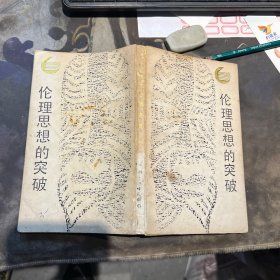 伦理思想的突破
伦理思想的突破